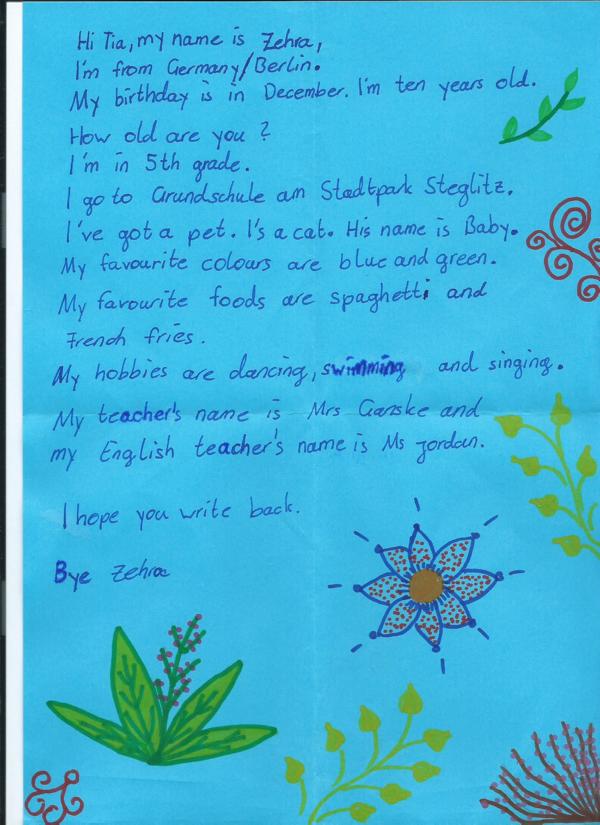 Hi Tia, my name is Zehra,
I'm from Germany/Berlin.
My birthday is in December. I'm ten years old.
How old are you?
I'm in 5th grade.
I go to Grundschule am Stadtpark Steglitz.
I've got a pet. I's a cat. His name is Baby.
My favourite colours are blue and green.
My favourite foods are spaghetti and
French fries.
My hobbies are dancing, swimming and singing.
My teacher's name is Mrs Ganske and
my English teacher's name is Ms Jordan.
I hope you write back.
Bye Zehra